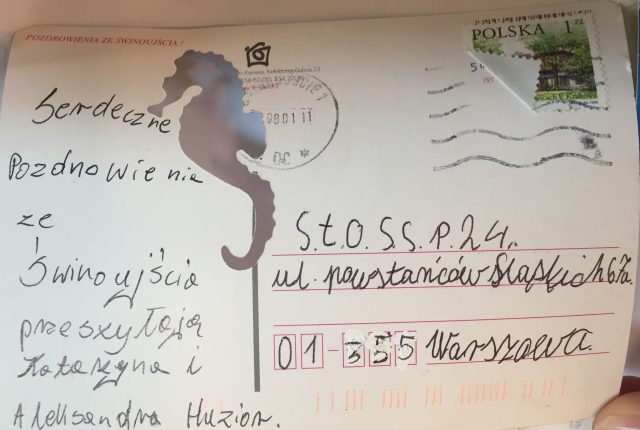 POZDROWIENIA ZE ŚWINOUJŚCIA !
POLSKA 1 ZŁ
Serdeczne
Pozdrowienia
ze
Świnoujścia
przesyłają
Katarzyna i
Aleksandra Huzior.
S.t.O.S.S.P.24.
ul. powstańców Śląskich 67a.
01-355 Warszawa.